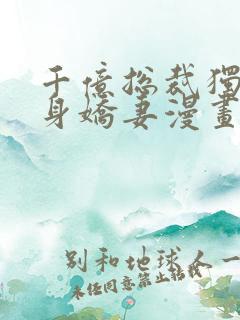 千億總裁獨
身嬌妻漫畫
別和地球人一
未经同意禁止转载